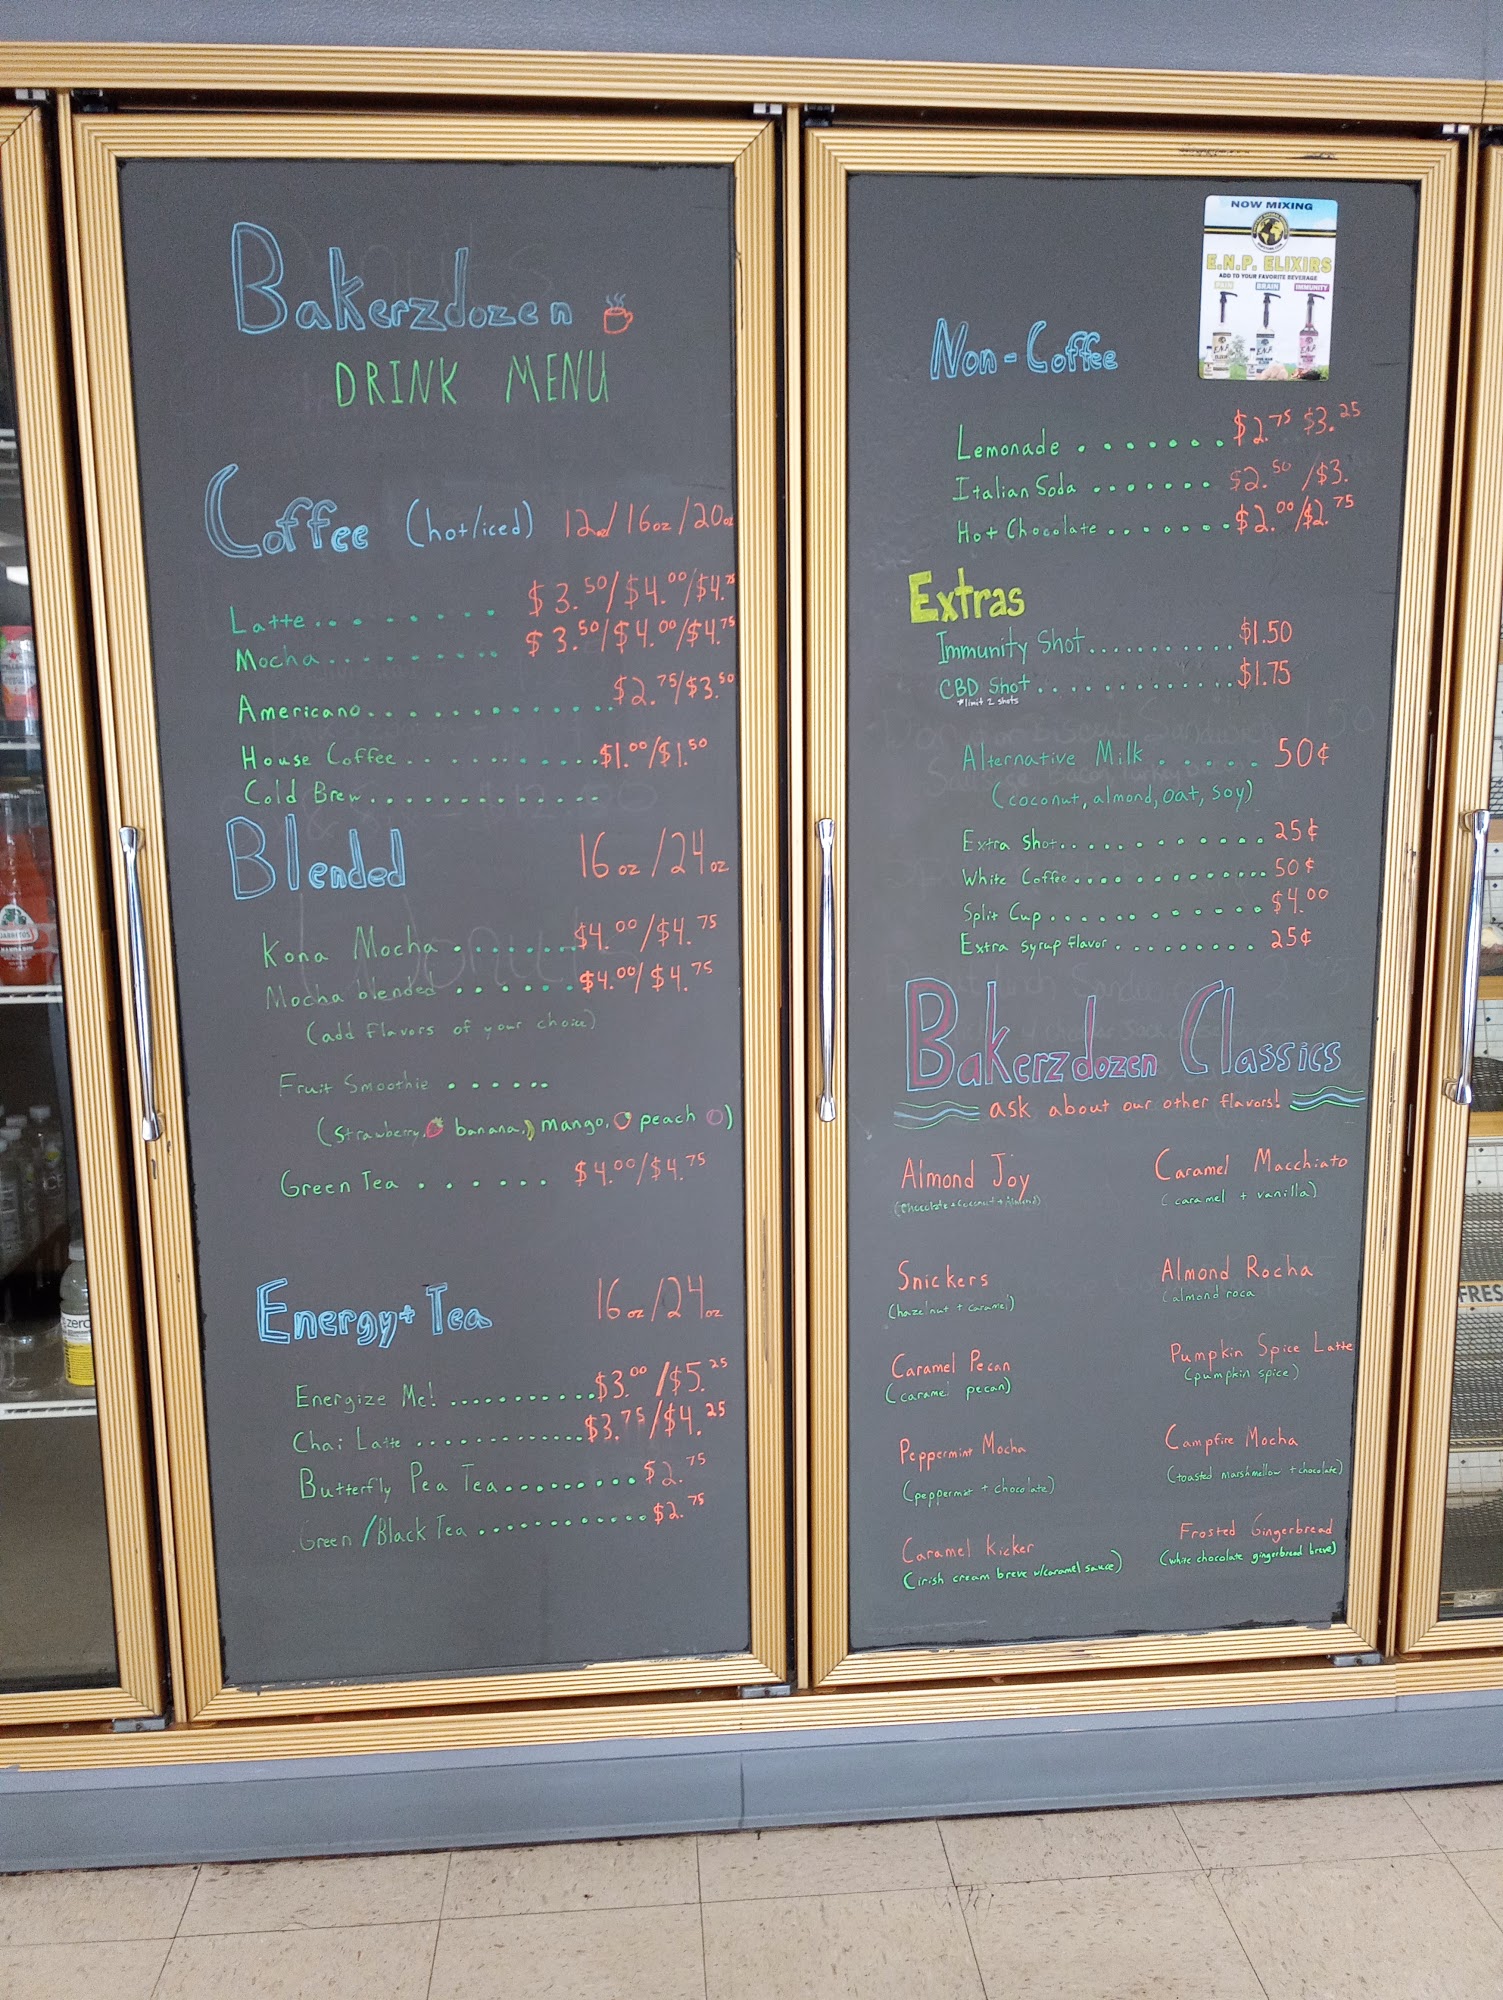 Bakerzdozen
DRINK MENU
Coffee (hot/iced) 12oz/16oz/20oz
Latte........ $3.50/$4.00/$4.75
Mocha......... $3.50/$4.00/$4.75
Americano............. $2.75/$3.50
House Coffee........... $1.00/$1.50
Cold Brew.............
Blended 16oz/24oz
Kona Mocha....... $4.00/$4.75
Mocha blended...... $4.00/$4.75
(add flavors of your choice)
Fruit Smoothie......
(strawberry, banana, mango, peach)
Green Tea...... $4.00/$4.75
Energy+Tea 16oz/24oz
Energize Me!........... $3.00/$5.25
Chai Latte............. $3.75/$4.25
Butterfly Pea Tea........ $2.75
Green/Black Tea............ $2.75
NOW MIXING
E.N.P. ELIXIRS
ADD TO YOUR FAVORITE BEVERAGE
PAIN BRAIN IMMUNITY
Non-Coffee
Lemonade....... $2.75 $3.25
Italian Soda....... $2.50/$3.
Hot Chocolate....... $2.00/$2.75
Extras
Immunity Shot........... $1.50
CBD Shot............. $1.75
*limit 2 shots
Alternative Milk...... 50¢
(coconut, almond, oat, soy)
Extra Shot............ 25¢
White Coffee............. 50¢
Split Cup............ $4.00
Extra syrup flavor......... 25¢
Bakerzdozen Classics
ask about our other flavors!
Almond Joy
(Chocolate+Coconut+Almond)
Caramel Macchiato
(caramel + vanilla)
Snickers
(hazelnut + caramel)
Almond Rocha
(almond roca
Caramel Pecan
(caramel pecan)
Pumpkin Spice Latte
(pumpkin spice)
Peppermint Mocha
(peppermint + chocolate)
Campfire Mocha
(toasted marshmellow + chocolate)
Caramel Kicker
(irish cream breve w/caramel sauce)
Frosted Gingerbread
(white chocolate gingerbread breve)
JARRITOS
zero
FRES